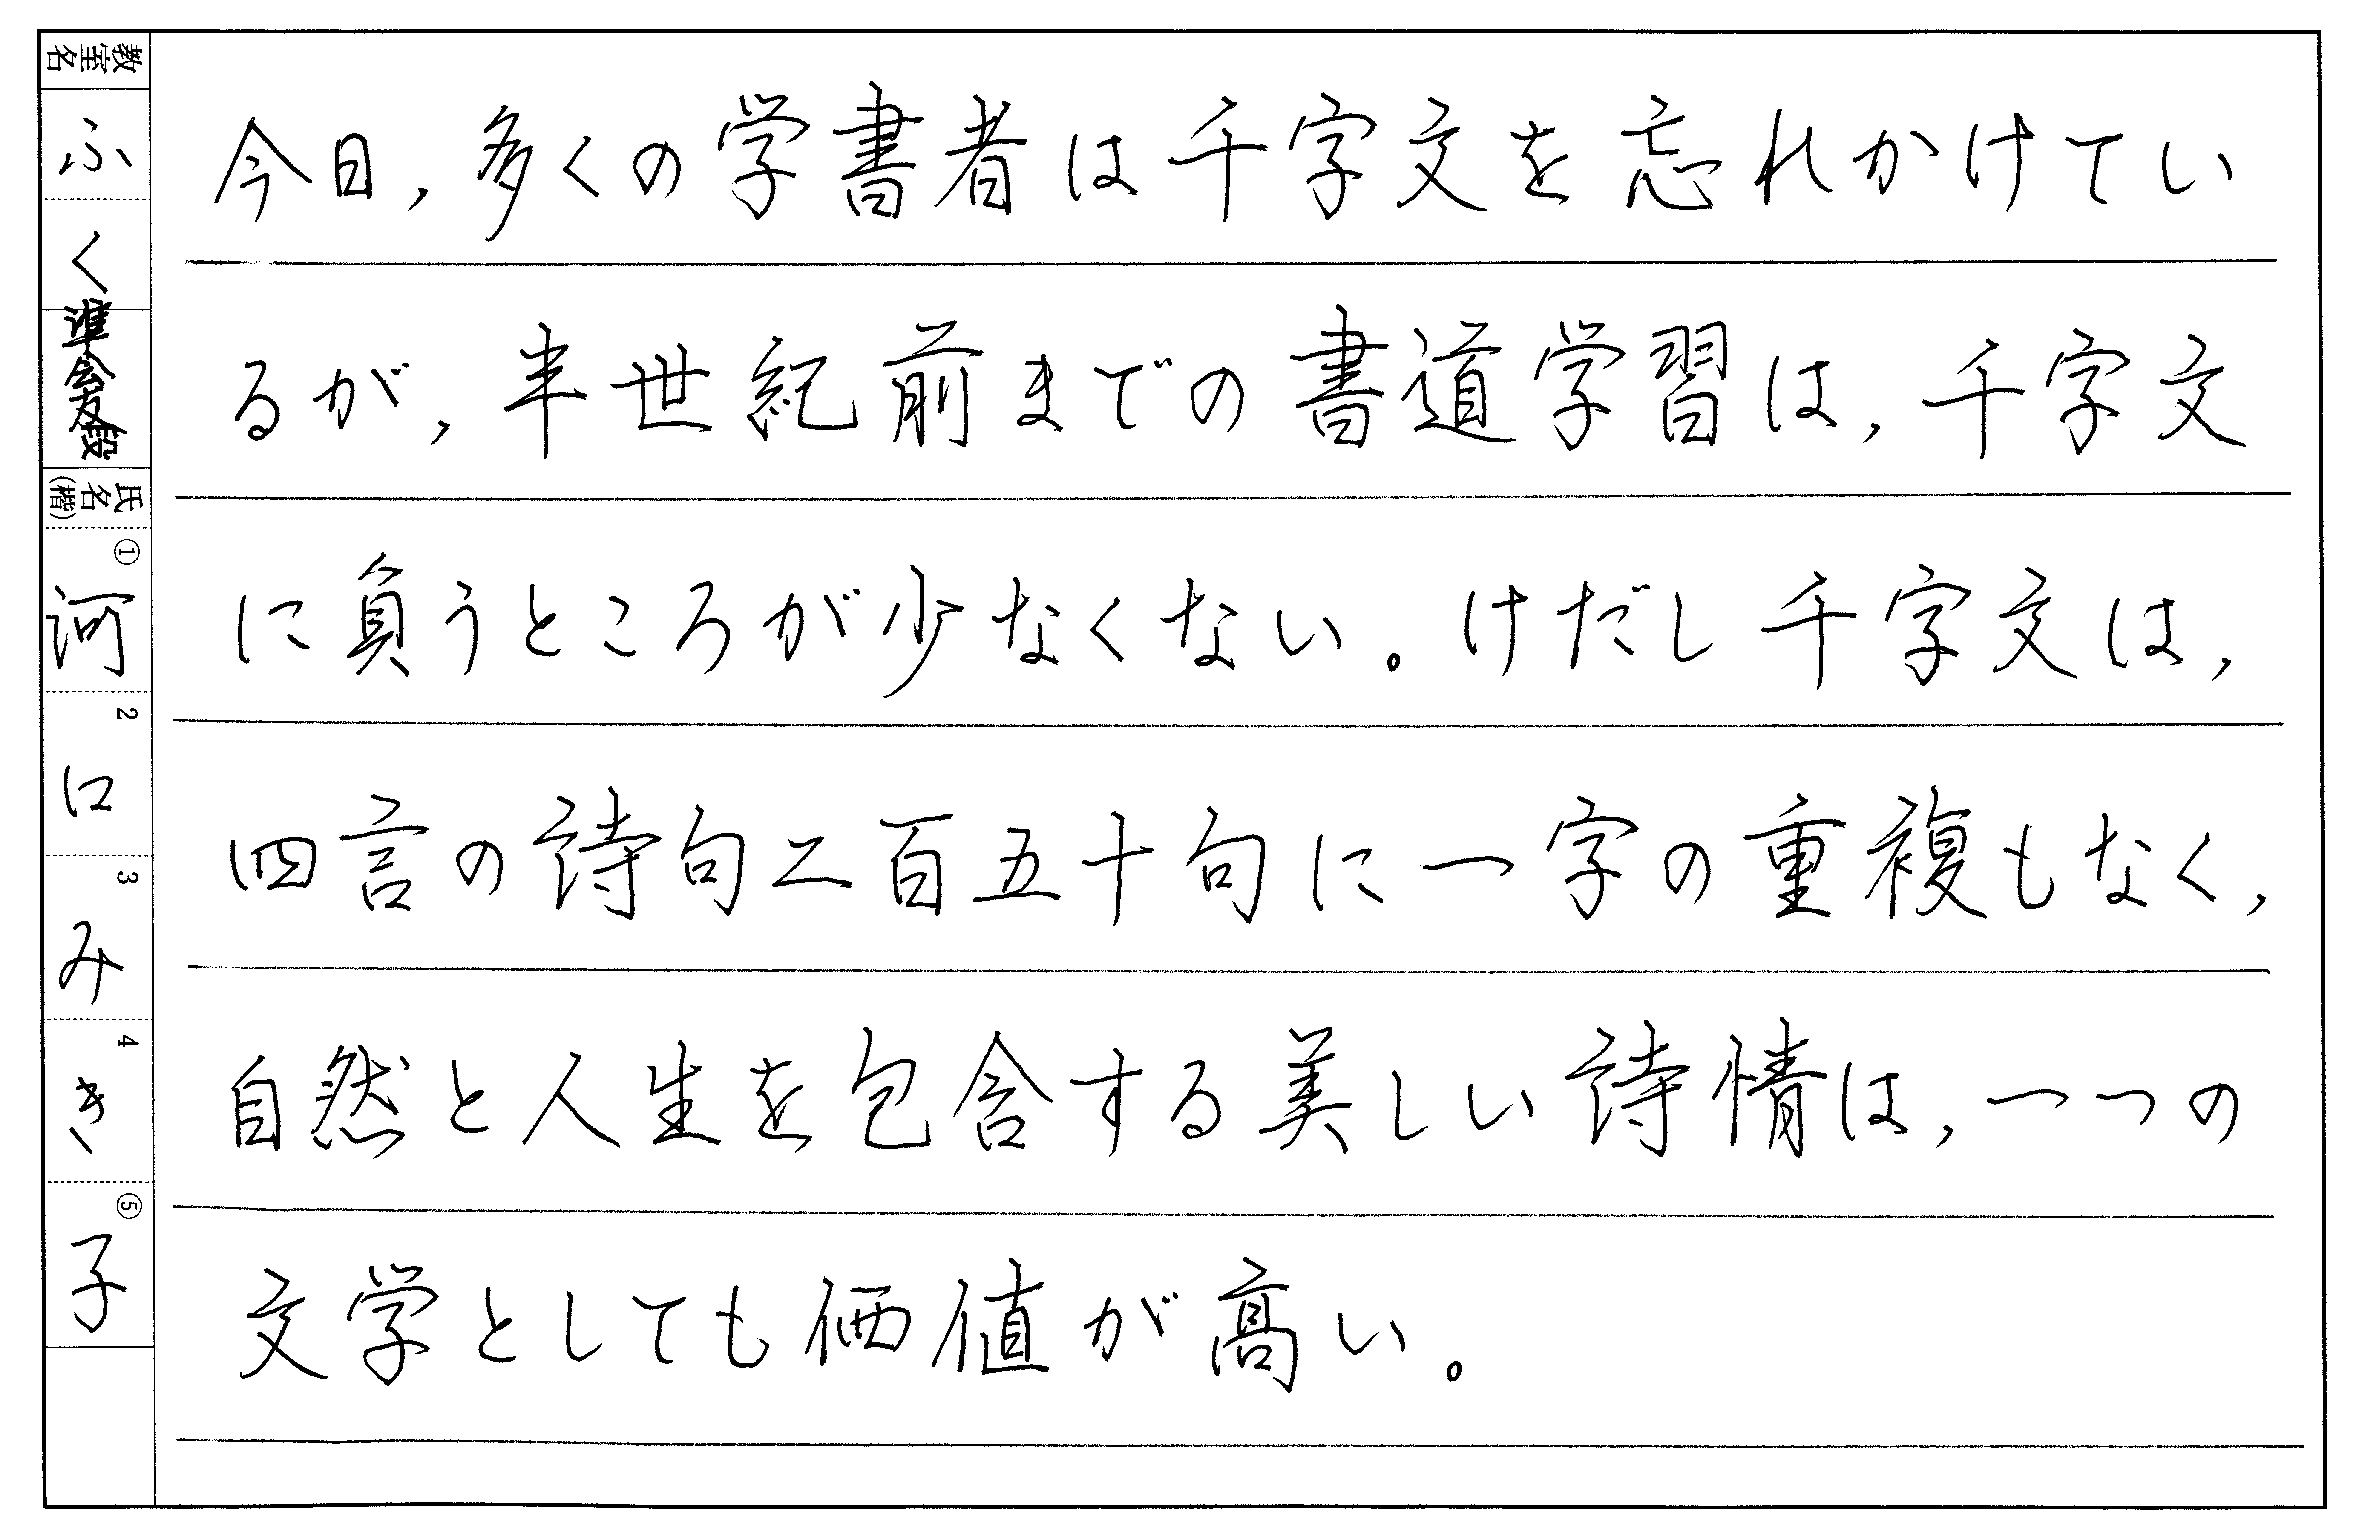 今日，多くの学書者は千字文を忘れかけてい
るが，半世紀前までの書道学習は，千字文
に負うところが少なくない。けだし千字文は，
四言の詩句二百五十句に一字の重複もなく，
自然と人生を包含する美しい詩情は，一つの
文学としても価値が高い。
教室名
ふく
準会友段
氏名(楷)
① 河
2 口
3 み
4 き
⑤ 子